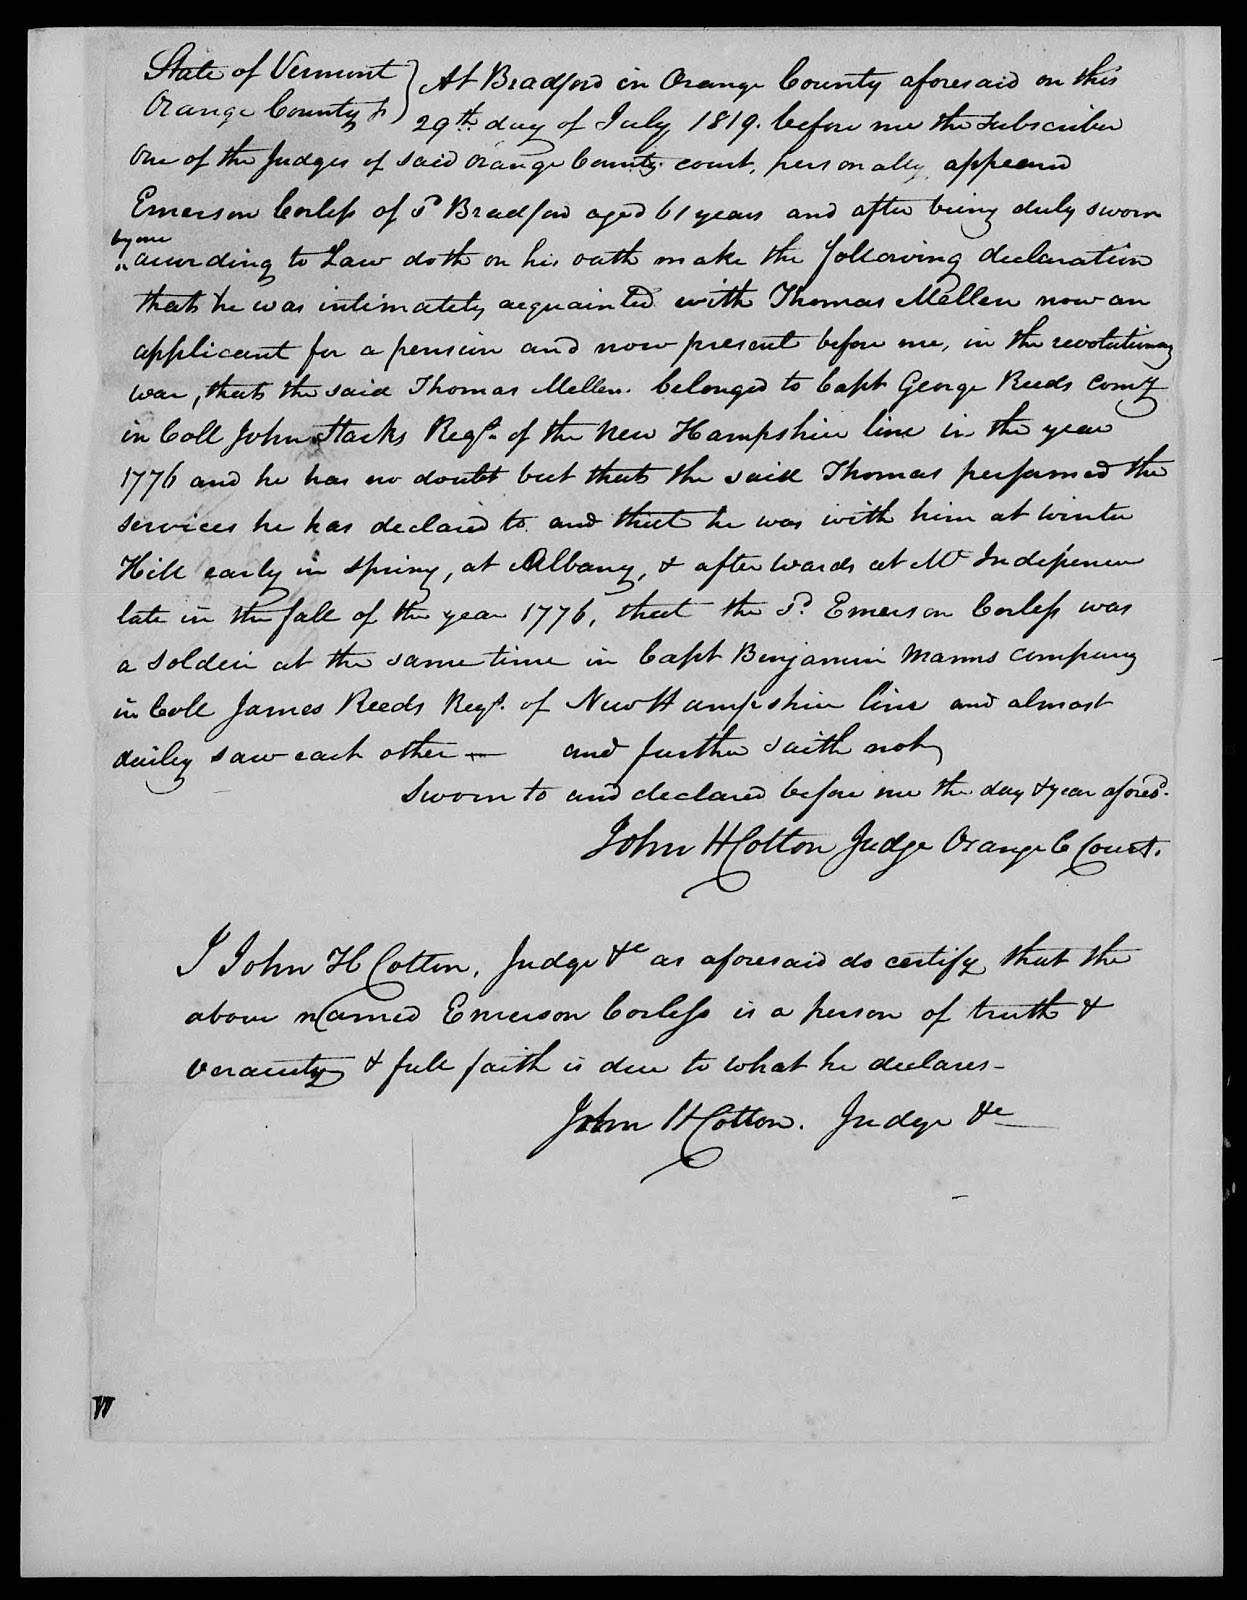 State of Vermont } At Bradford in Orange County aforesaid on this
Orange County ss } 29th day of July 1819. before me the subscriber
One of the Judges of said Orange County court, personally appeared
Emerson Corless of sd Bradford aged 61 years and after being duly sworn
by me
according to Law doth on his oath make the following declaration
that he was intimately acquainted with Thomas Mellen now an
applicant for a pension and now present before me, in the revolutionary
war, that the said Thomas Mellen belonged to Capt George Reeds Comy
in Coll John Starks Regt. of the New Hampshire line in the year
1776 and he has no doubt but that the said Thomas performed the
services he has declared to and that he was with him at Winter
Hill early in spring, at Albany, & after wards at Mt Indepence
late in the fall of the year 1776, that the sd. Emerson Corless was
a soldier at the same time in Capt Benjamin Manns company
in Coll James Reeds Regt. of New Hampshire line and almost
dailey saw each other — and further saith not
Sworn to and declared before me the day & year aforesd.
John H Cotton Judge Orange C Court.
I John H Cotton, Judge &c as aforesaid do certify that the
above named Emerson Corless is a person of truth &
veracity & full faith is due to what he declares —
John H Cotton. Judge &c